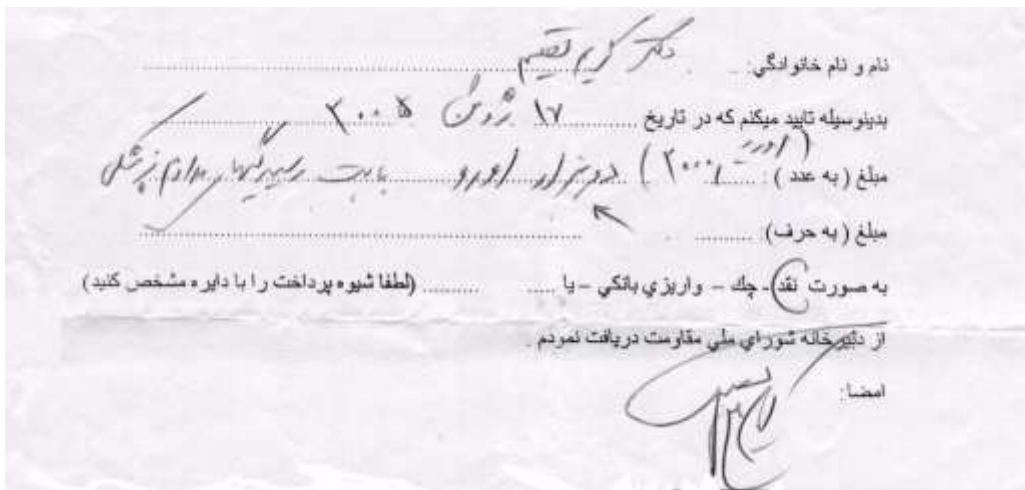 نام و نام خانوادگی: دکتر کریم قصیم
بدینوسیله تایید میکنم که در تاریخ ۱۷ ژوئن ۲۰۰۵
مبلغ ( به عدد ) : ( ۲۰۰۰ ) دو هزار اورو بابت
مبلغ ( به حرف):
به صورت نقد - چك – واريزي بانكي – يا ..... (لطفا شیوه پرداخت را با دایره مشخص کنید)
از دبیرخانه شوراي ملي مقاومت دریافت نمودم .
امضا: